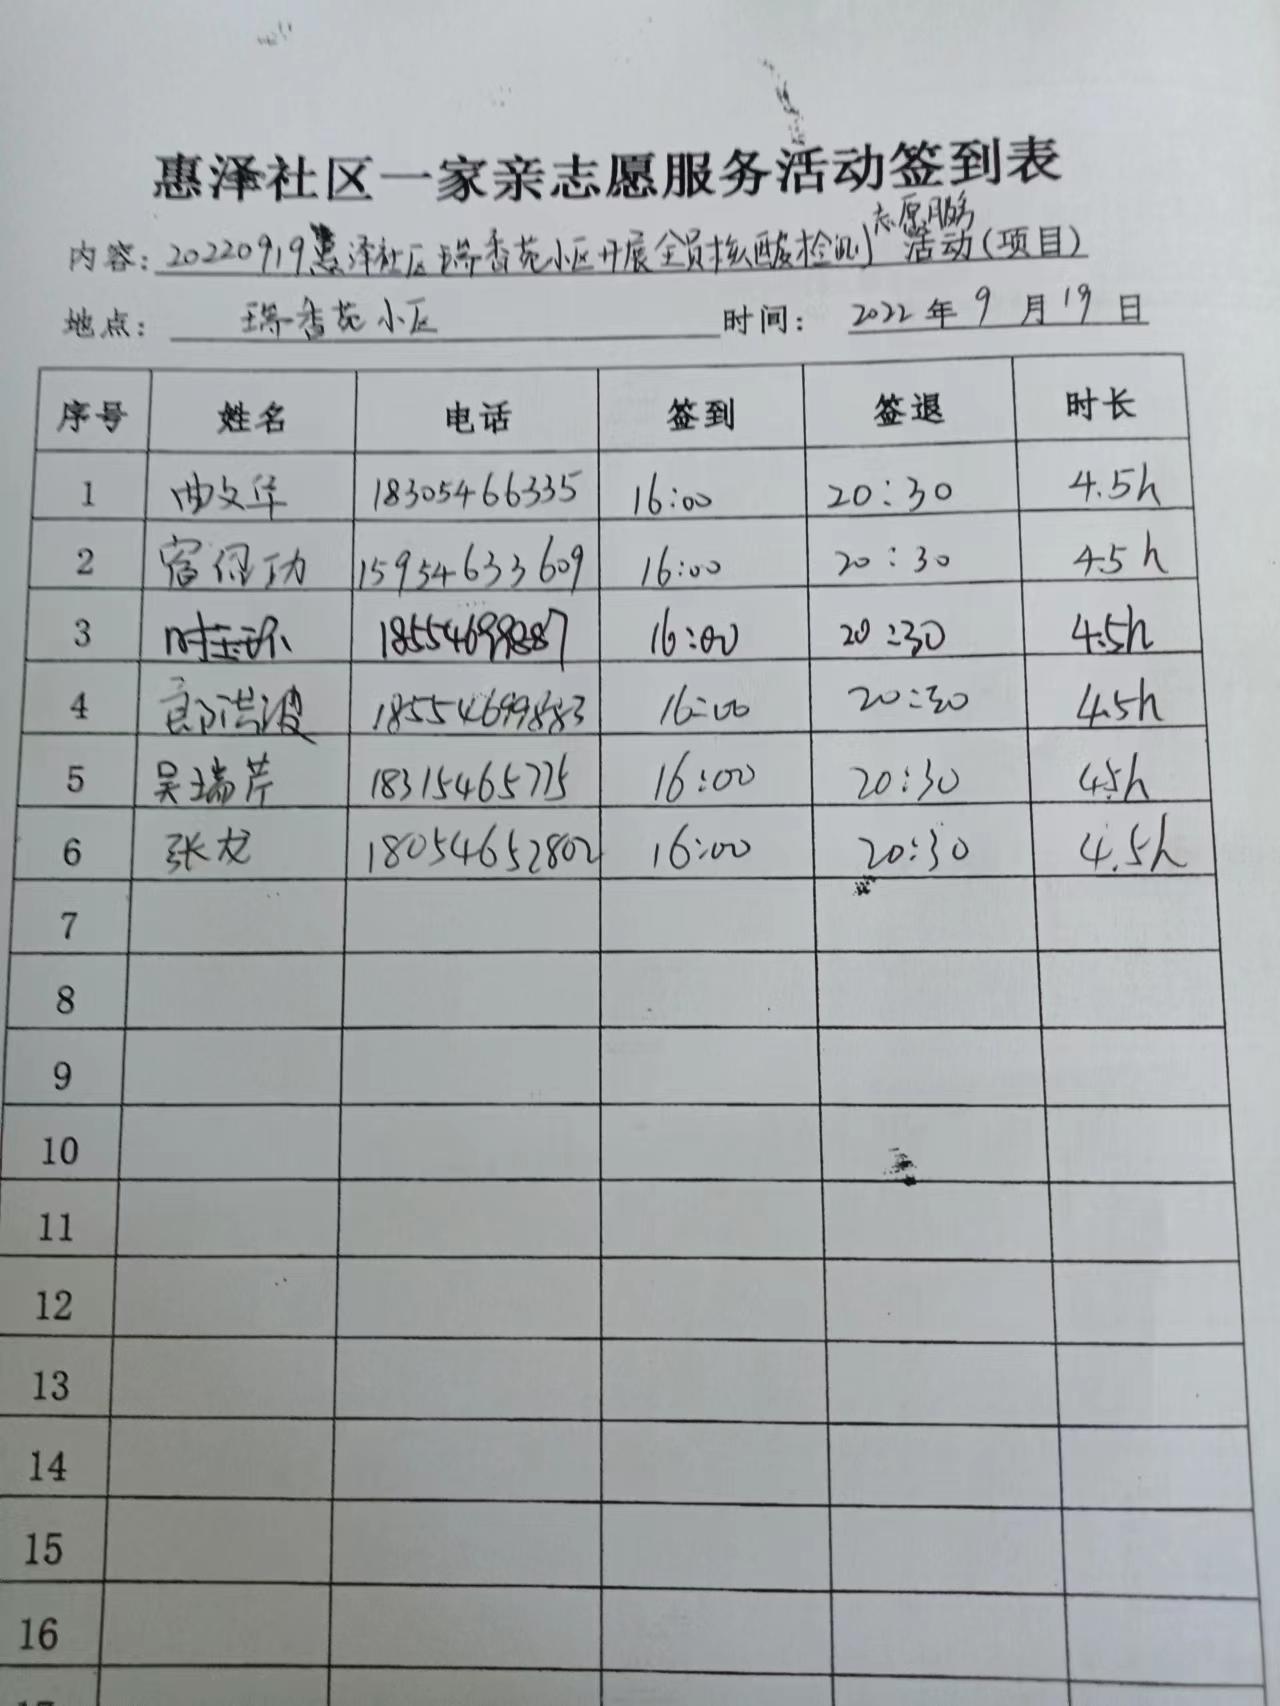 惠泽社区一家亲志愿服务活动签到表
志愿服务
内容：20220919惠泽社区瑞香苑小区开展全员核酸检测 活动(项目)
地点： 瑞香苑小区 时间： 2022年9月19日
序号 姓名 电话 签到 签退 时长
1 曲文华 18305466335 16:00 20:30 4.5h
2 宿保功 15954633609 16:00 20:30 4.5h
3 18554699887 16:00 20:30 4.5h
4 18554699883 16:00 20:30 4.5h
5 吴瑞芹 18315465775 16:00 20:30 4.5h
6 张龙 18054652802 16:00 20:30 4.5h
7
8
9
10
11
12
13
14
15
16
17